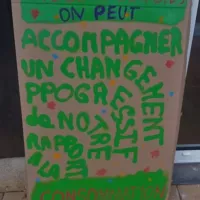 ON PEUT
ACCOMPAGNER
UN CHANGEMENT
PPOGRESSIF
de NOTRE
RAPPORT
A LA